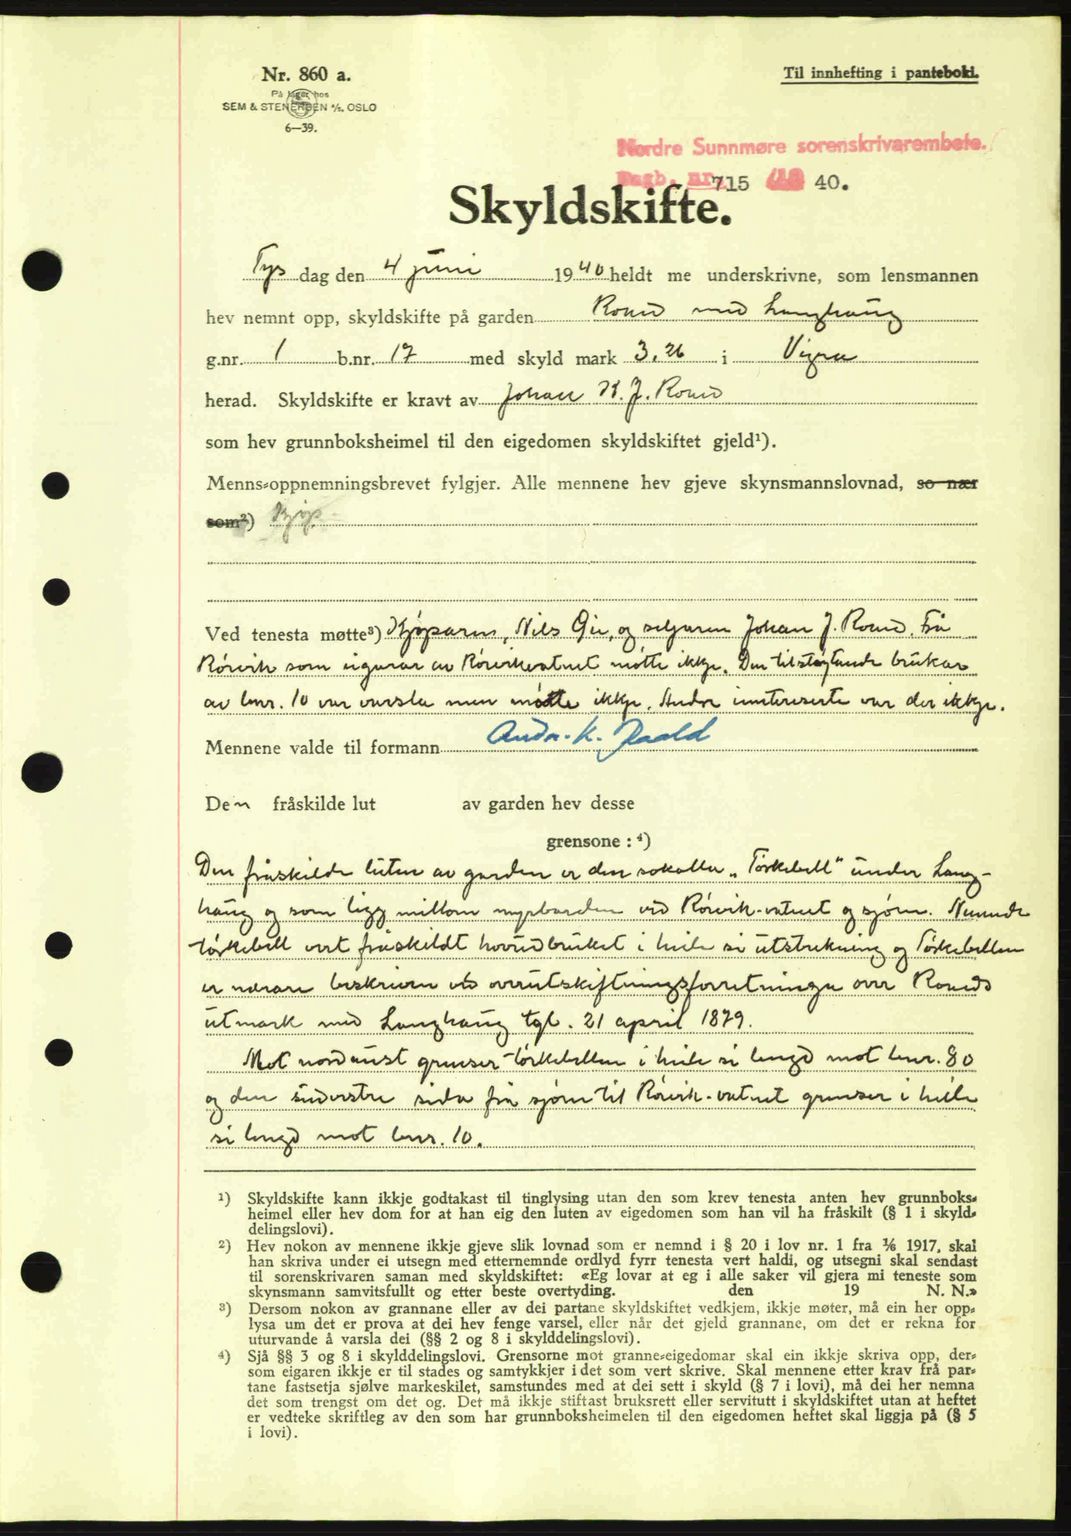 Nr. 860 a.
På lager hos
SEM & STENERSEN A/S. OSLO
6—39.
Til innhefting i pantebok.
Nordre Sunnmøre sorenskrivarembete.
Dagb. nr. 715 40.
Skyldskifte.
Tys dag den 4 juni 1940 heldt me underskrivne, som lensmannen
hev nemnt opp, skyldskifte på garden Roald med Langhaug
g.nr. 1 b.nr. 17 med skyld mark 3,26 i Vigra
herad. Skyldskifte er kravt av Johan K. J. Roald
som hev grunnboksheimel til den eigedomen skyldskiftet gjeld¹).
Menns-oppnemningsbrevet fylgjer. Alle mennene hev gjeve skynsmannslovnad, so nær
som²) Kjøp
Ved tenesta møtte³) Kjøparen, Nils Gje, og seljaren Johan J. Roald. Frå
Rørvik som eigarar av Rørvikvatnet møtte ikkje. Den tilstøytande brukar
av bnr. 10 var varsla men møtte ikkje. Andre interesserte var der ikkje.
Mennene valde til formann Andr. K. Roald
Den fråskilde lut av garden hev desse
grensone : ⁴)
Den fråskilde luten av garden er den sokalla „Torkebell" under Lang-
haug og som ligg millom myrbarden ved Rørvik-vatnet og sjøen. Nemnde
torkebell vert fråskildt hovudbruket i heile si utstrekning og Torkebellen
er nærare beskriven ved overutskiftningsforretninga over Roalds
utmark med Langhaug tgl. 21 april 1879.
Mot nordaust grenser torkebellen i heile si lengd mot bnr. 80
og den sudvestre sida frå sjøen til Rørvik-vatnet grenser i heile
si lengd mot bnr. 10.
¹) Skyldskifte kann ikkje godtakast til tinglysing utan den som krev tenesta anten hev grunnboks-
heimel eller hev dom for at han eig den luten av eigedomen som han vil ha fråskilt (§ 1 i skyld-
delingslovi).
²) Hev nokon av mennene ikkje gjeve slik lovnad som er nemnd i § 20 i lov nr. 1 fra 1/6 1917, skal
han skriva under ei utsegn med etternemnde ordlyd fyrr tenesta vert haldi, og utsegni skal sendast
til sorenskrivaren saman med skyldskiftet: «Eg lovar at eg i alle saker vil gjera mi teneste som
skynsmann samvitsfullt og etter beste overtyding. den 19 N. N.»
³) Dersom nokon av grannane eller av dei partane skyldskiftet vedkjem, ikkje møter, må ein her opp-
lysa um det er prova at dei hev fenge varsel, eller når det gjeld grannane, om det er rekna for
uturvande å varsla dei (§§ 2 og 8 i skylddelingslovi).
⁴) Sjå §§ 3 og 8 i skylddelingslovi. Grensorne mot granne-eigedomar skal ein ikkje skriva opp, der-
som eigaren ikkje er til stades og samtykkjer i det som vert skrive. Skal mennene etter krav frå par-
tane fastsetja sjølve markeskilet, samstundes med at dei sett i skyld (§ 7 i lovi), må dei her nemna
det som trengst om det og. Det må ikkje stiftast bruksrett eller servitutt i skyldskiftet utan at heftet
er vedteke skriftleg av den som har grunnboksheimelen til den eigedomen heftet skal liggja på (§ 5
i lovi).